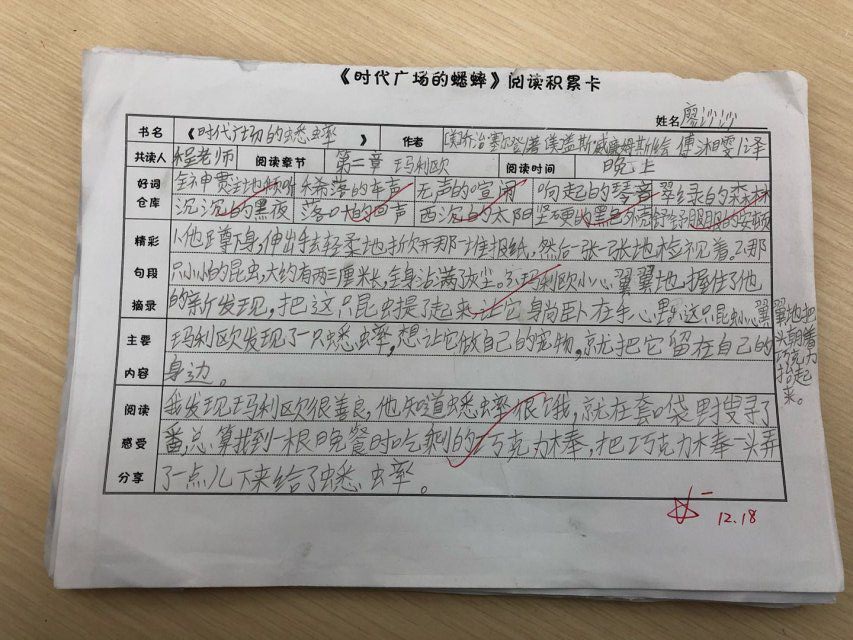 《时代广场的蟋蟀》阅读积累卡
姓名 廖沙沙
书名 《时代广场的蟋蟀 》 作者 [美]乔治·塞尔登著 [美]盖斯·威廉姆斯绘 傅湘雯译
共读人 程老师 阅读章节 第二章 玛利欧 阅读时间 晚上
好词 全神贯注地倾听 稀落的车声 无声的喧闹 响起的琴音 翠绿的森林
仓库 沉沉的黑夜 落叶的回声 西沉的太阳 坚硬的黑色外壳 舒舒服服的安顿
精彩 1.他蹲下身,伸出手去轻柔地拆开那堆报纸,然后一张一张地检视着。2.那
句段 只小小的昆虫,大约有两三厘米长,全身沾满灰尘。3.玛利欧小心翼翼地,握住了他
摘录 的新发现,把这只昆虫提了起来,让它身尚卧在手心里。这只昆虫小心翼翼地把
头朝着
巧克力
抬起
来。
主要 玛利欧发现了一只蟋蟀,想让它做自己的宠物,就把它留在自己的
内容 身边。
阅读 我发现玛利欧很善良,他知道蟋蟀很饿,就在套口袋里搜寻了
感受 番,总算找到一根晚餐时吃剩的巧克力棒,把巧克力棒一头弄
分享 了一点儿下来给了蟋蟀。
12.18